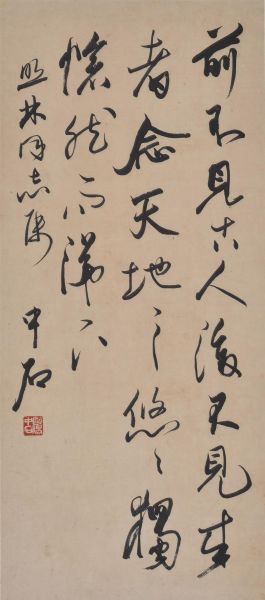 前不見古人後不見来
者念天地之悠〻獨
愴然而涕下
照林同志属
中石